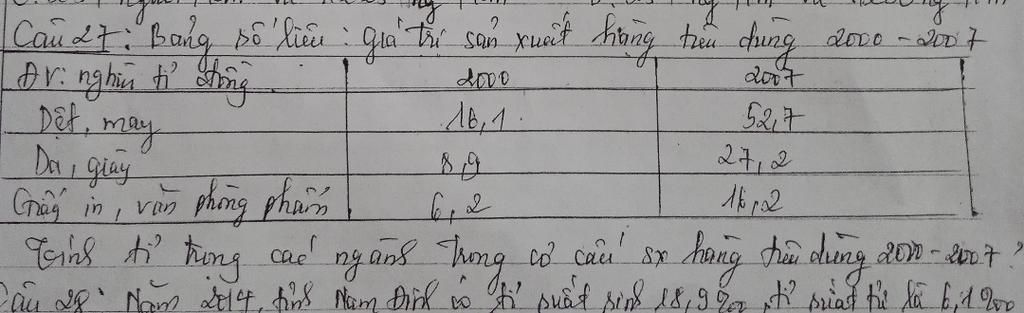 Câu 27: Bảng số liệu: giá trị sản xuất hàng tiêu dùng 2000-2007
ĐV: nghìn tỉ đồng 2000 2007
Dệt, may 16,1 52,7
Da, giày 8,9 27,2
Giấy in, văn phòng phẩm 6,2 16,2
Tính tỉ trọng các ngành trong cơ cấu sx hàng tiêu dùng 2000-2007?
Câu 28: Năm 2014, tỉnh Nam Định có tỉ suất sinh 18,9‰, tỉ suất tử là 6,1‰